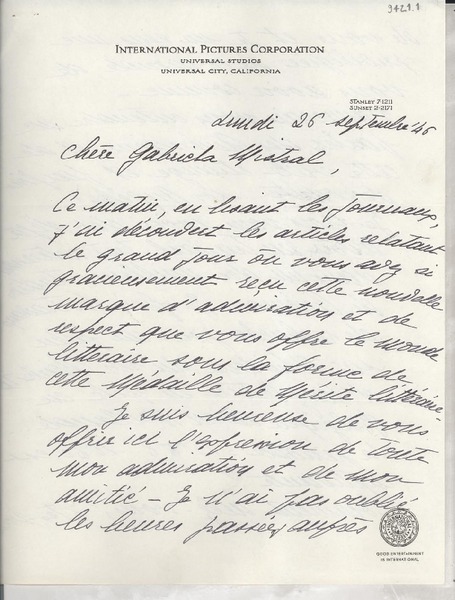 9421.1
INTERNATIONAL PICTURES CORPORATION
UNIVERSAL STUDIOS
UNIVERSAL CITY, CALIFORNIA
STANLEY 7-1211
SUNSET 2-2171
Lundi 26 septembre '46
Chère Gabriela Mistral,
Ce matin, en lisant les journaux,
j'ai découvert les articles relatant
le grand jour où vous avez si
gracieusement reçu cette nouvelle
marque d'admiration et de
respect que vous offre le monde
littéraire sous la forme de
cette Médaille de Mérite littéraire.
Je suis heureuse de vous
offrir ici l'expression de toute
mon admiration et de mon
amitié – Je n'ai pas oublié
les heures passées auprès
GOOD ENTERTAINMENT
IS INTERNATIONAL